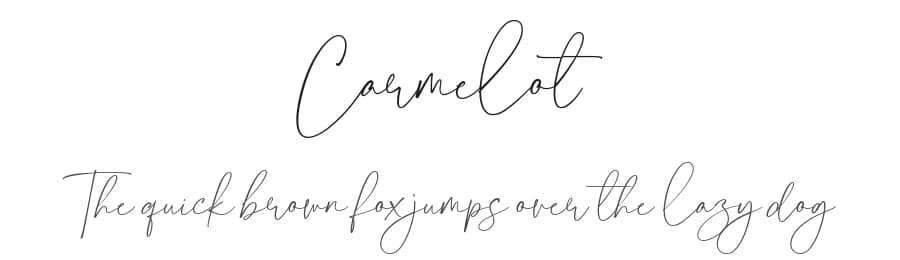 Carmelot
The quick brown fox jumps over the lazy dog